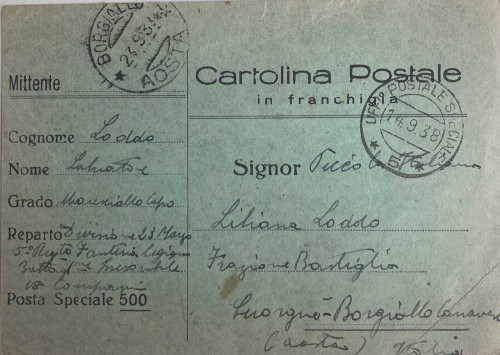 BORGIALLO
23.9.38
AOSTA
Mittente
Cartolina Postale
in franchigia
UFF° POSTALE SPECIALE
14.9.38
5
Cognome Loddo
Nome Salvatore
Grado Maresciallo Capo
Reparto Divisione 23 Marzo
5° Regto Fanteria Legion
Posta Speciale 500
Signor Piccola Italiana
Liliana Loddo
Frazione Bastiglia
Cuorgnè-Borgiallo Canavese
(Aosta) Italia